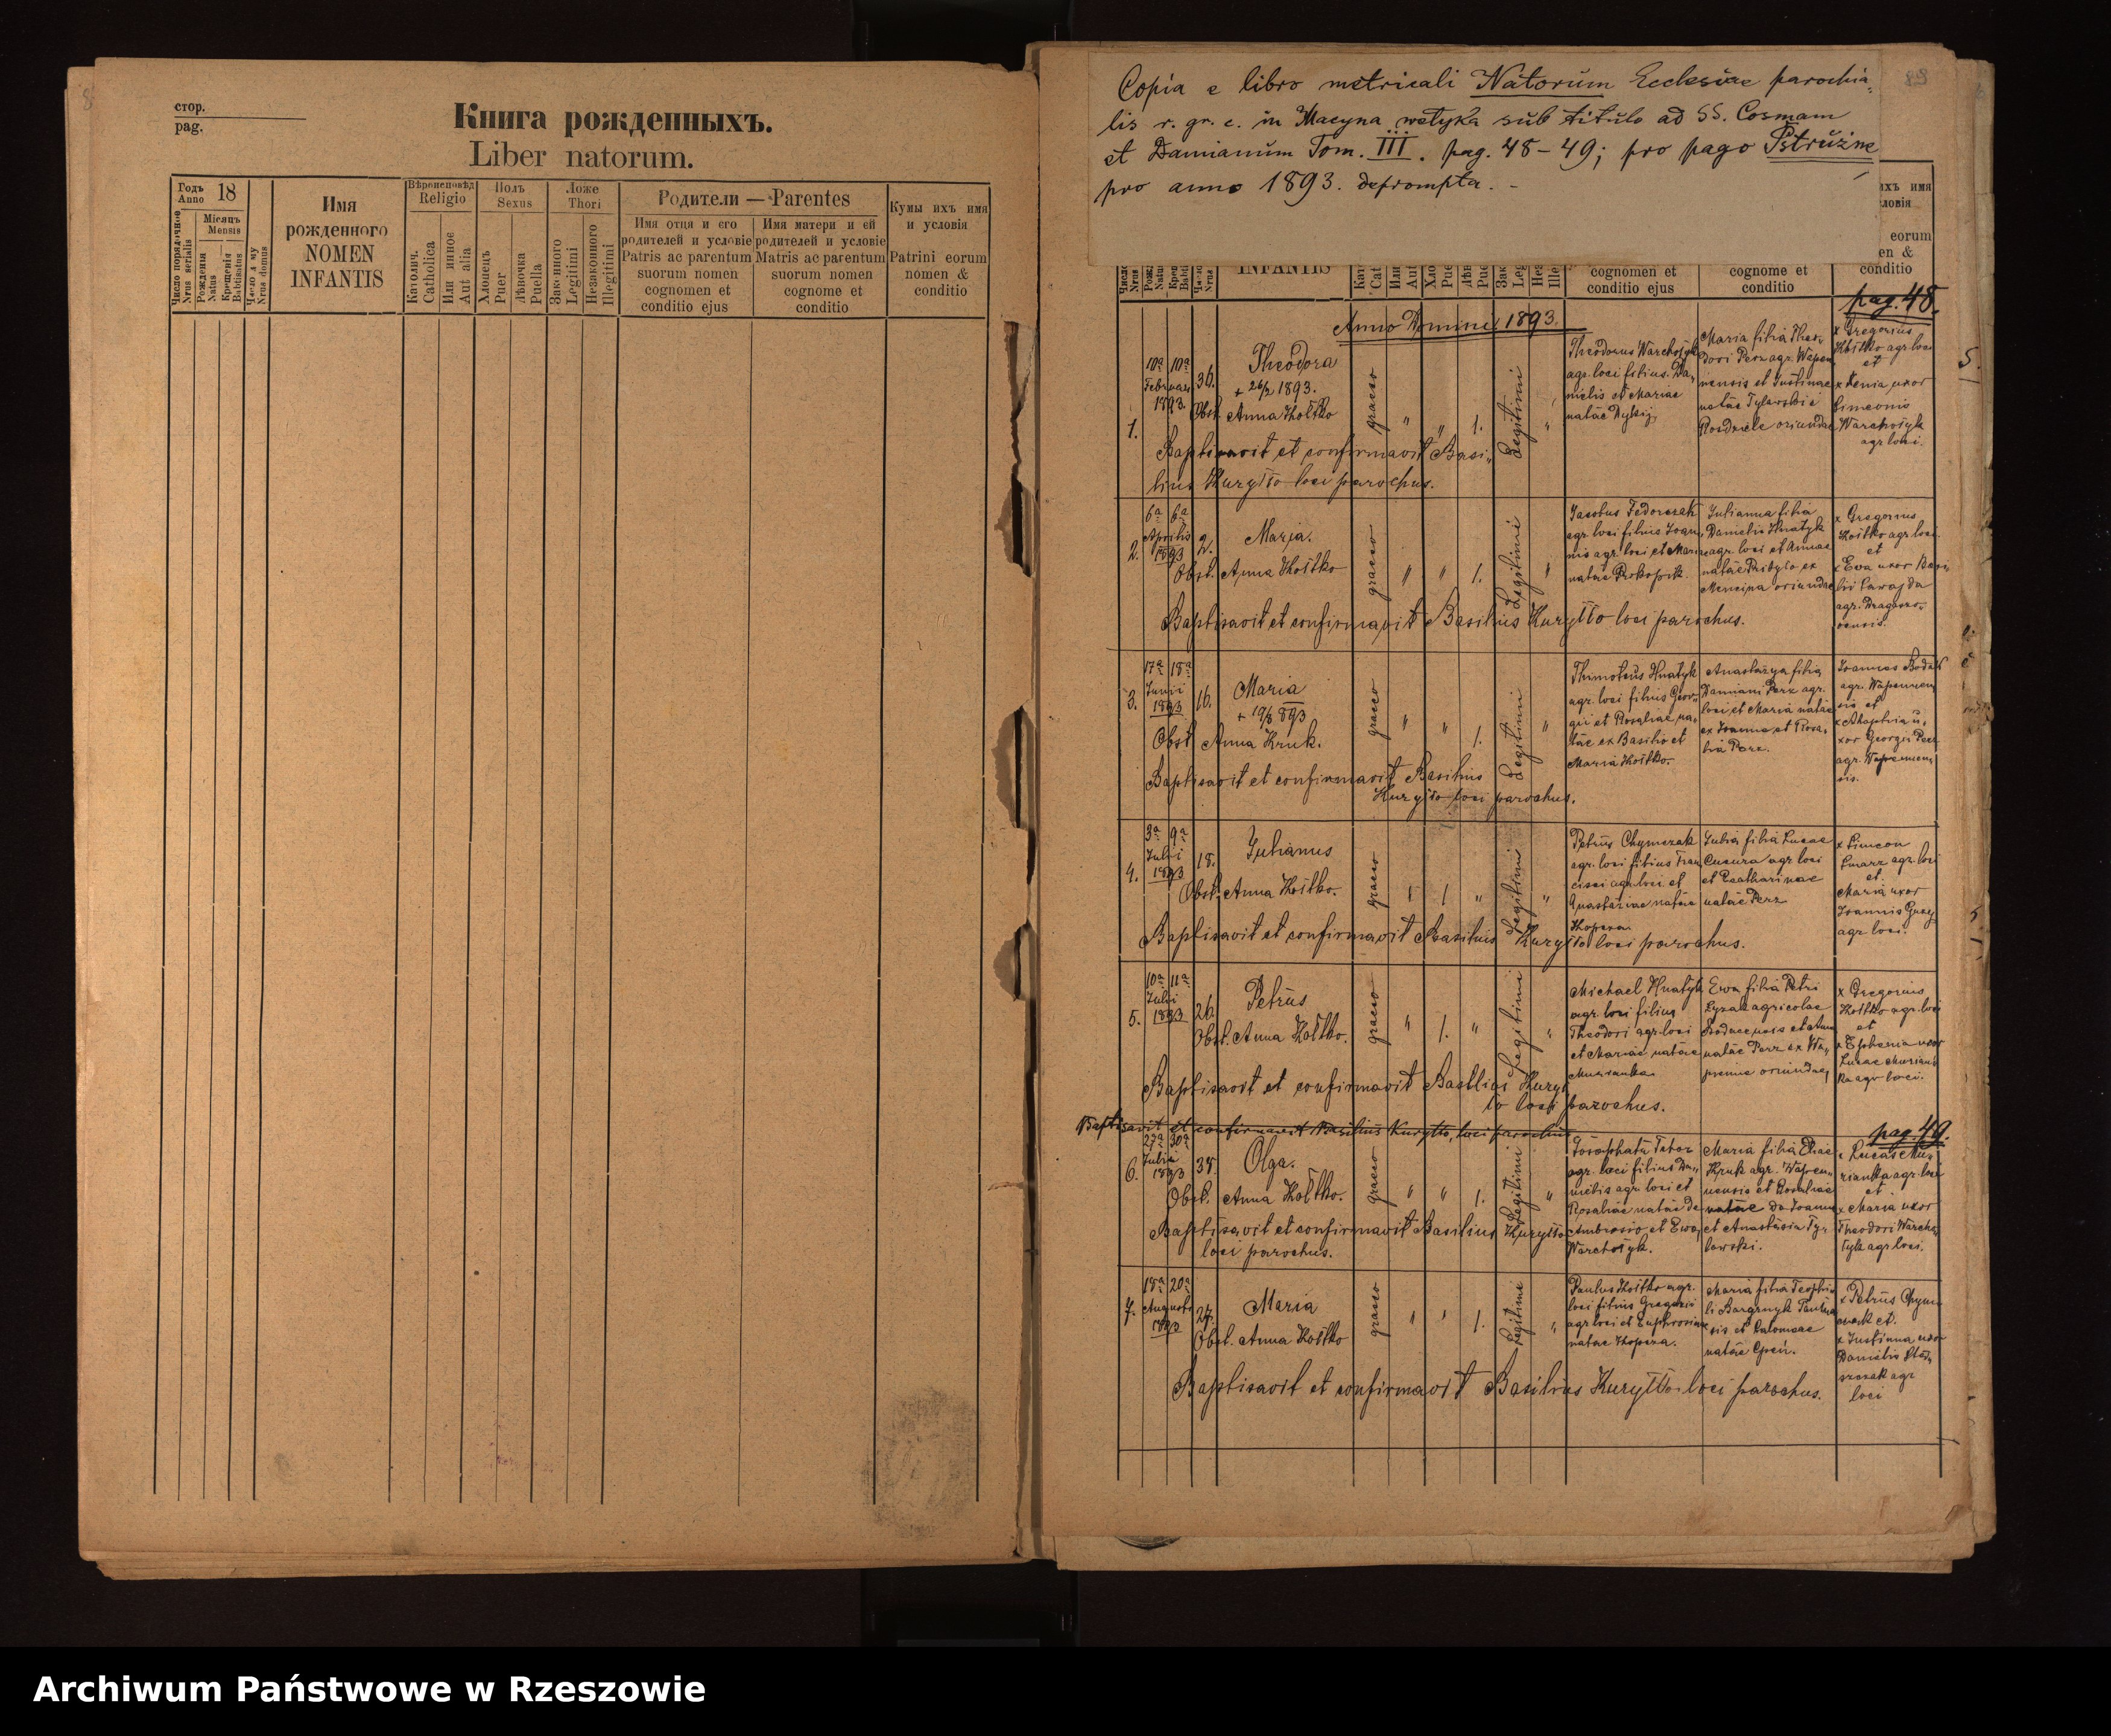 стор.
pag.
Книга рожденныхъ.
Liber natorum.
Годъ
Anno 18
Місяцъ
Mensis
Число порядочное
Nrus serialis
Рожденья
Natus
Крещенія
Babtisatus
Nrus domus
Имя
рожденного
NOMEN
INFANTIS
Вѣроисповѣд
Religio
Католич.
Catholica
Или инное
Aut alia
Полъ
Sexus
Хлопецъ
Puer
Дѣвочка
Puella
Ложе
Thori
Законного
Legitimi
Незаконного
Illegitimi
Родители — Parentes
Имя отця и его
родителей и условіе
Patris ac parentum
suorum nomen
cognomen et
conditio ejus
Имя матери и ей
родителей и условіе
Matris ac parentum
suorum nomen
cognome et
conditio
Кумы ихъ имя
и условія
Patrini eorum
nomen &
conditio
Copia e libro metricali Natorum Ecclesiae parochia-
lis r. gr. c. in Macyna wetyka sub titulo ad SS. Cosmam
et Damianum Tom. III. pag. 48–49; pro pago Pstrużne
pro anno 1893. deprompta. –
ихъ имя
ловія
eorum
en &
conditio
INFANTIS
cognomen et
conditio ejus
cognome et
conditio
pag. 48.
Anno Domini 1893.
1.
10a 10a
Februari
1893.
36.
Theodora
+ 26/2 1893.
Obst. Anna Hoitko
graeco
" " 1.
Legitimi
"
Theodorus Warchołyk
agr. loci filius Da-
nielis et Mariae
natae Dyhij
Maria filia Theo-
dori Perz agr. Wapen-
nensis et Justinae
natae Tylawskie
Rozdziele oriundae
x Gregorius
Hoitko agr. loci
et
x Xenia uxor
Simeonis
Warchołyk
agr. loci.
Baptisavit et confirmavit Basi-
lius Kuryłło loci parochus.
2.
6a 6a
Aprilis
1893
2.
Maria.
Obst. Anna Hoitko
graeco
" " 1.
Legitimi
"
Jacobus Fedorczak
agr. loci filius Joan-
nis agr. loci et Mariae
natae Prokopik.
Julianna filia
Danielis Hnatyk
agr. loci et Annae
natae Pribyło ex
Mencina oriundae
x Gregorius
Hoitko agr. loci.
et
x Eva uxor Basi-
lii
agr.
Baptisavit et confirmavit Basilius Kuryłło loci parochus.
3.
17a 18a
Junii
1893
16.
Maria
+ 19/8 893
Obst. Anna Kruk.
graeco
" " 1.
Legitimi
"
Thimoteus Hnatyk
agr. loci filius Geor-
gii et Rosaliae na-
tae ex Basilio et
Maria Hoitko.
Anastazya filia
Damiani Perz agr.
loci et Maria natae
ex Joanne et Rosa-
lia Perz.
Joannes
agr. Wapennen-
sis et
x Ahaphia u-
xor Georgii Perz
agr. Wapennen-
sis.
Baptisavit et confirmavit Basilius
Kuryłło loci parochus.
4.
3a 9a
Julii
1893
18.
Julianus
Obst. Anna Hoitko.
graeco
" 1 "
Legitimi
"
Petrus Chymczak
agr. loci filius Fran-
cisci agr. loci et
Anastaziae natae
Hopera.
Julia filia Lucae
Cucura agr loci
et Catharinae
natae Perz
x Simeon
agr. loci
et
Maria uxor
Joannis
agr loci.
Baptisavit et confirmavit Basilius Kuryłło loci parochus.
5.
10a 11a
Julii
1893
26.
Petrus
Obst. Anna Hoitko.
graeco
" 1. "
Legitimi
"
Michael Hnatyk
agr. loci filius
Theodori agr. loci
et Mariae natae
Murianka
Ewa filia Petri
agricolae
natae Perz ex Wa-
penne oriundae
x Gregorius
Hoitko agr. loci
et
x Euphenia uxor
Lucae Murian-
ka agr loci.
Baptisavit et confirmavit Basilius Kurył-
ło loci parochus.
Baptisavit et confirmavit Basilius Kuryłło, loci parochus
pag. 49.
6.
27a 30a
Julii
1893
38.
Olga.
Obst. Anna Hoitko.
graeco
" " 1.
Legitimi
"
Josaphatus
agr. loci filius Da-
nielis agr. loci et
Rosaliae natae de
Ambrosio et Ewa
Warchołyk.
Maria filia Eliae
Hruk agr. Wapen-
nensis et Rosaliae
natae de Joanne
et Anastasia Ty-
lawski.
x Lucas Mu-
rianka agr. loci
et
x Maria uxor
Theodori Warcho-
łyk agr loci.
Baptisavit et confirmavit Basilius Kuryłło
loci parochus.
7.
18a 20a
Augusti
1893
27.
Maria
Obst. Anna Hoitko
graeco
" " 1.
Legitimi
"
Paulus Hoitko agr.
loci filius Gregorii
agr loci et Euphrosinae
natae Hopera.
Maria filia Teophi-
li
et Salomeae
natae
x Petrus Chym-
czak et.
x Justinna uxor
Danielis
agr
loci
Baptisavit et confirmavit Basilius Kuryłło loci parochus.
Archiwum Państwowe w Rzeszowie